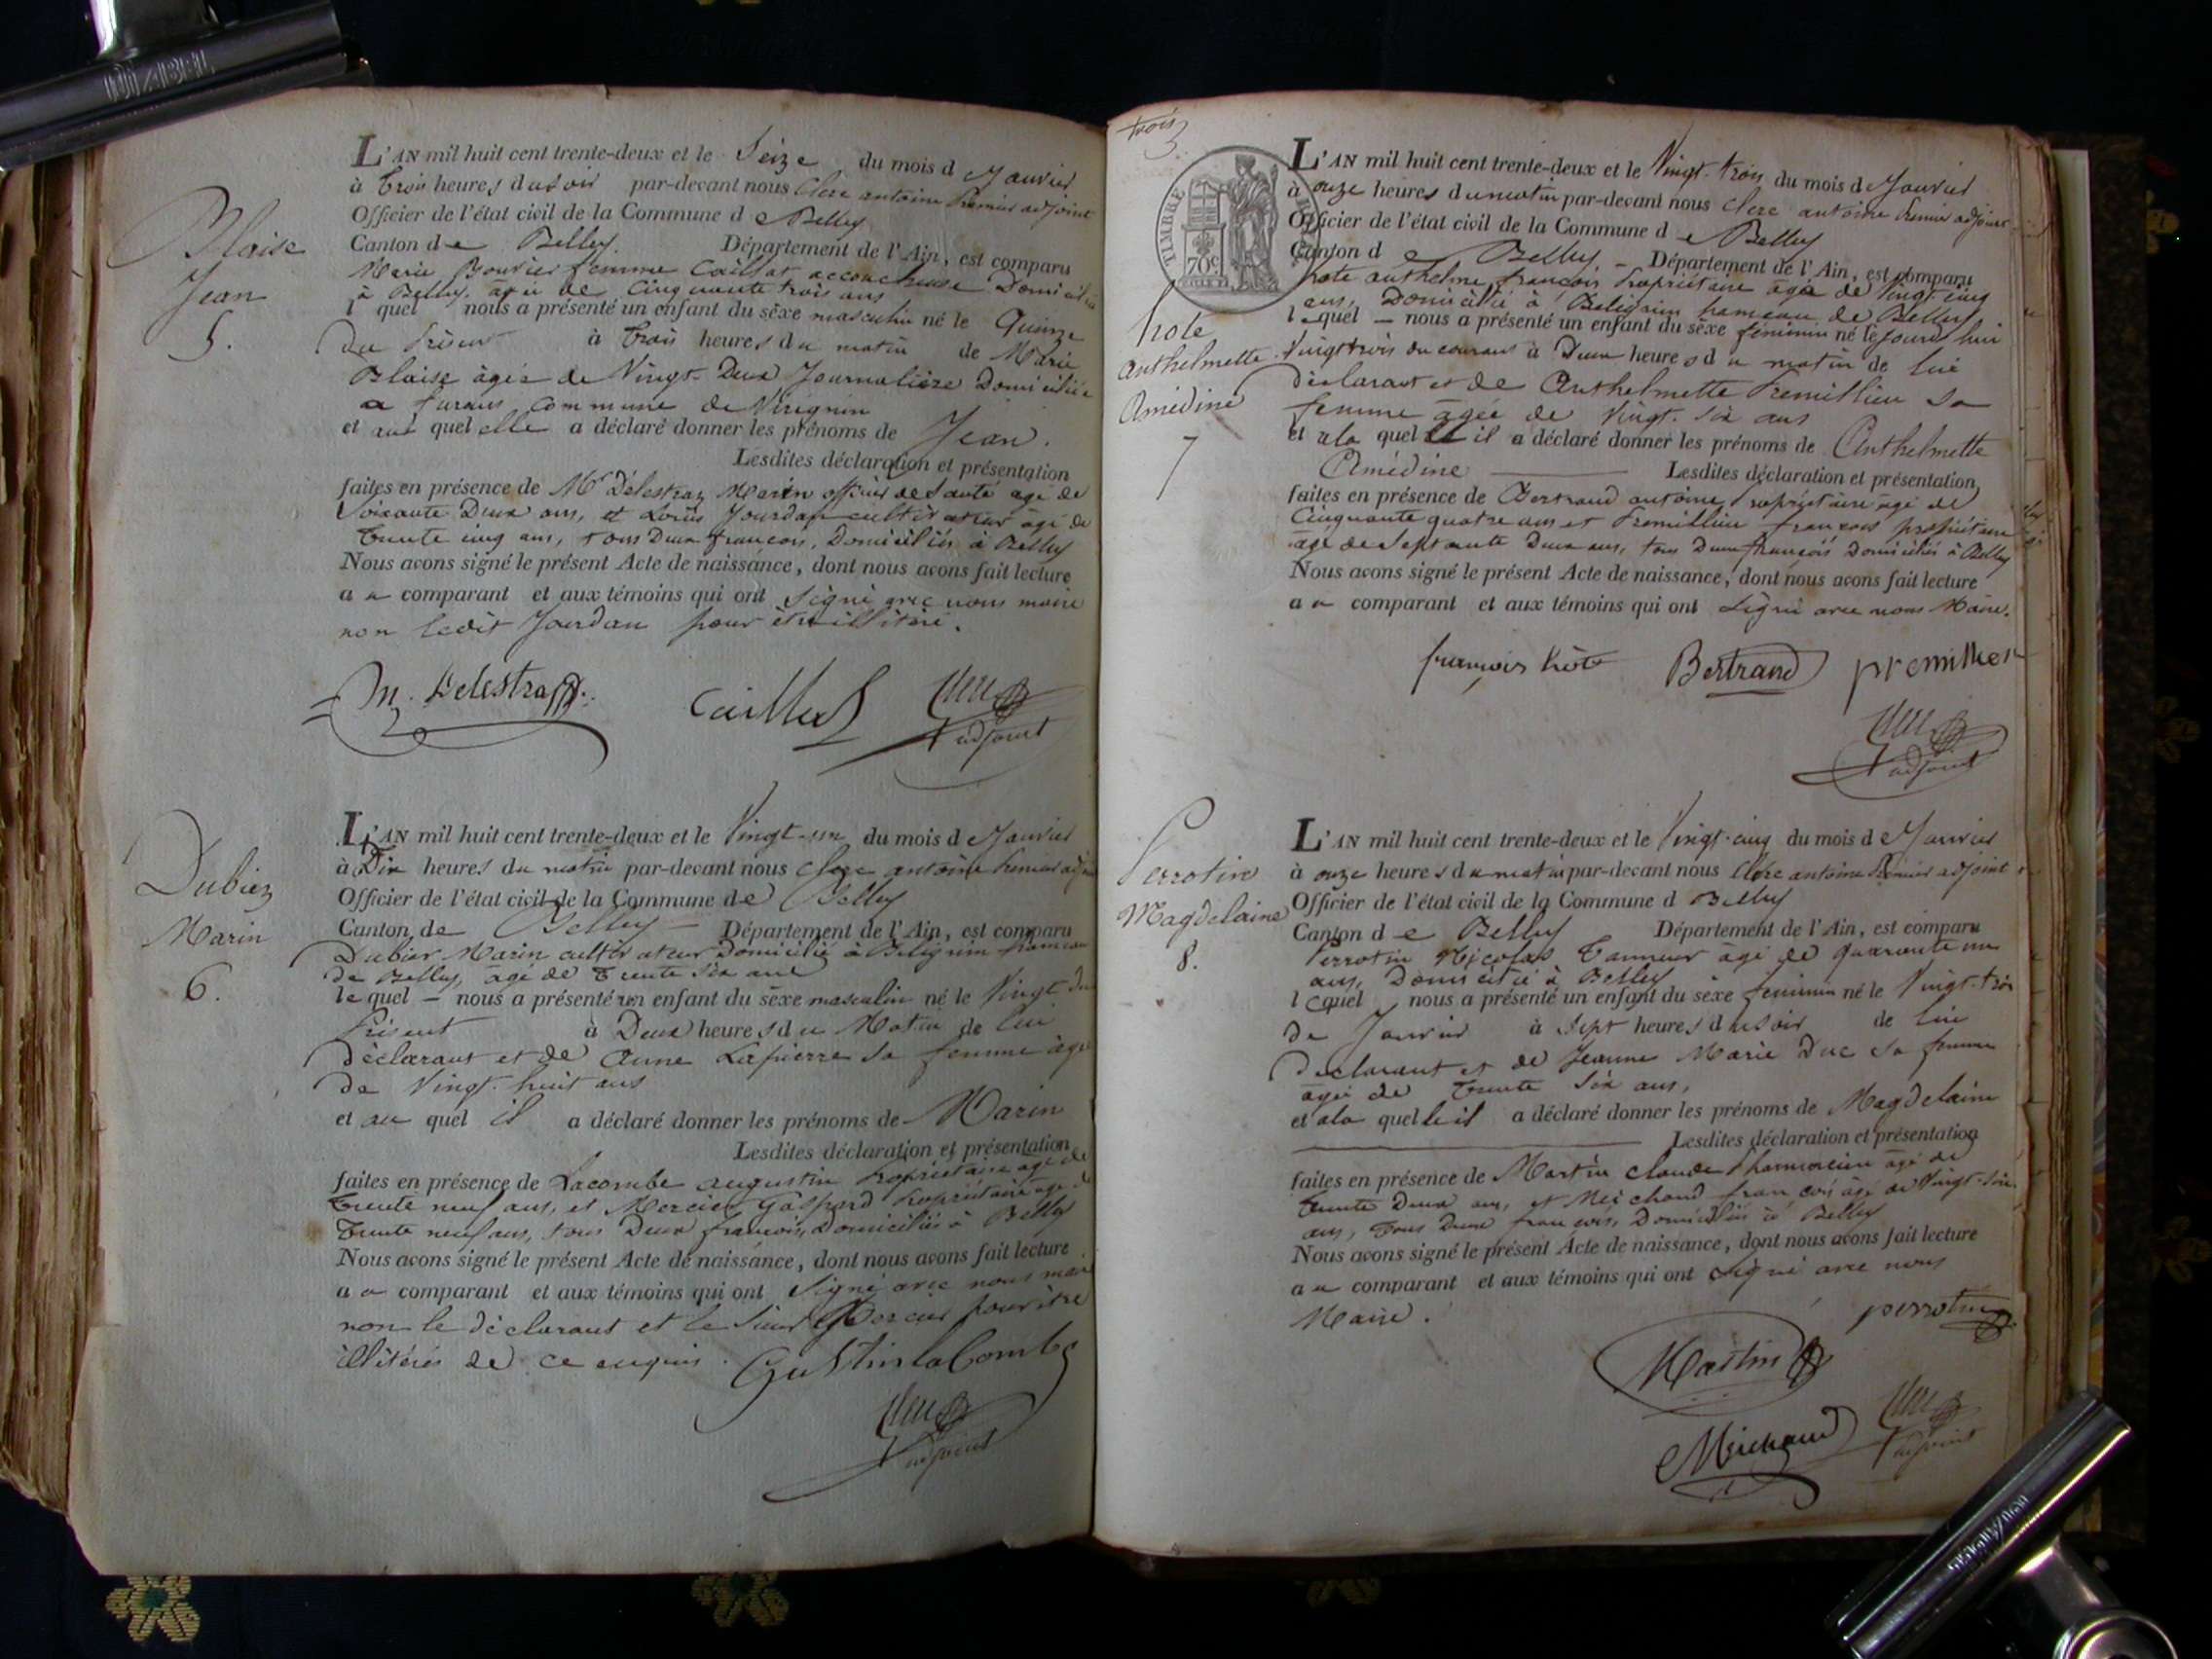 DIZABEL
Blaise
Jean
5.
L'AN mil huit cent trente-deux et le Seize du mois d e Janvier
à Trois heures du soir par-devant nous Clerc antoine Premier adjoint
Officier de l'état civil de la Commune d e Belley
Canton d e Belley. Département de l'Ain, est comparu
Marie Bouvier femme Caillat accoucheuse Domiciliée
à Belley, agée de Cinquante trois ans
l quel nous a présenté un enfant du sèxe masculin né le Quinze
Du Présent à Trois heures du matin de Marie
Blaise âgée de Vingt-Deux Journalière Domiciliée
a furans Commune de Virignin
et au quel elle a déclaré donner les prénoms de Jean.
Lesdites déclaration et présentation
faites en présence de Mr Délestraz Marin officier de Santé agé de
Soixante Deux ans, et Louis Jourdan cultivateur âgé de
Trente cinq ans, tous Deux françois, Domiciliés à Belley
Nous avons signé le présent Acte de naissance, dont nous avons fait lecture
a u comparant et aux témoins qui ont Signé avec nous maire
non ledit Jourdan pour être illitéré.
M. Delestraz
Clerc
adjoint
Dubiez
Marin
6.
L'AN mil huit cent trente-deux et le Vingt-un du mois d e Janvier
à Dix heures du matin par-devant nous Clerc antoine Premier adjoint
Officier de l'état civil de la Commune de Belley
Canton de Belley — Département de l'Ain, est comparu
Dubiez Marin cultivateur Domicilié à Bilignin hameau
de Belley, âgé de Trente Six ans
le quel — nous a présenté un enfant du sèxe masculin né le Vingt du
Présent à Deux heures du Matin de lui
déclarant et de Anne Lapierre sa femme âgée
de Vingt-huit ans
et au quel il a déclaré donner les prénoms de Marin
Lesdites déclaration et présentation
faites en présence de Lacombe augustin Propriétaire agé de
Trente neuf ans, et Mercier Gaspard Propriétaire âgé de
Trente neuf ans, tous Deux françois, domiciliés à Belley
Nous avons signé le présent Acte de naissance, dont nous avons fait lecture
a u comparant et aux témoins qui ont Signé avec nous maire
non le déclarant et le Sieur Mercier pour être
illitérés de ce enquis.
GuStin laCombe
Clerc
adjoint
trois
3
TIMBRE
70c
hote
Anthelmette
Amédine
7
L'AN mil huit cent trente-deux et le Vingt-trois du mois d e Janvier
à onze heures du matin par-devant nous Clerc antoine Premier adjoint
Officier de l'état civil de la Commune d e Belley
Canton d e Belley — Département de l'Ain, est comparu
hote anthelme françois Propriétaire âgé de Vingt-cinq
ans, Domicilié à Bilignin hameau de Belley
l e quel — nous a présenté un enfant du sèxe féminin né le jourd'hui
Vingt trois du courant à Deux heures du matin de lui
déclarant et de Anthelmette Premillieu sa
femme âgée de Vingt-Six ans
et a la quel le il a déclaré donner les prénoms de Anthelmette
Amédine Lesdites déclaration et présentation
faites en présence de Bertrand antoine propriétaire âgé de
Cinquante quatre ans et Premillieu françois propriétaire
âgé de Septante Deux ans, tous Deux françois Domiciliés à Belley
Nous avons signé le présent Acte de naissance, dont nous avons fait lecture
a u comparant et aux témoins qui ont Signé avec nous Maire.
françois hôte Bertrand
Clerc
adjoint
Perrotin
Magdelaine
8.
L'AN mil huit cent trente-deux et le Vingt-cinq du mois d e Janvier
à onze heures du matin par-devant nous Clerc antoine Premier adjoint
Officier de l'état civil de la Commune d Belley
Canton d e Belley Département de l'Ain, est comparu
Perrotin Nicolas Tanneur âgé de quarante un
ans, Domicilié à Belley
l e quel nous a présenté un enfant du sèxe feminin né le Vingt-trois
de Janvier à Sept heures du soir de lui
Déclarant et de Jeanne Marie Duc sa femme
âgée de Trente Six ans,
et a la quel le il a déclaré donner les prénoms de Magdelaine
Lesdites déclaration et présentation
faites en présence de Martin Claude Pharmacien âgé de
Trente Deux ans, et Michaud françois âgé de Vingt-Six
ans, Tous Deux françois, Domiciliés à Belley
Nous avons signé le présent Acte de naissance, dont nous avons fait lecture
a u comparant et aux témoins qui ont signé avec nous
Maire.
perrotin
Martin
Michaud
Clerc
adjoint